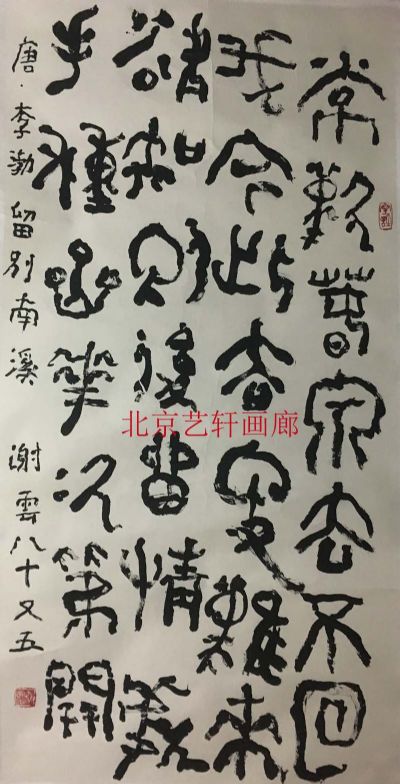 常歎春泉去不回
我今此去更難來
欲知别後留情處
手種岩花次第開
唐·李勃留别南溪 謝雲八十又五
北京艺轩画廊